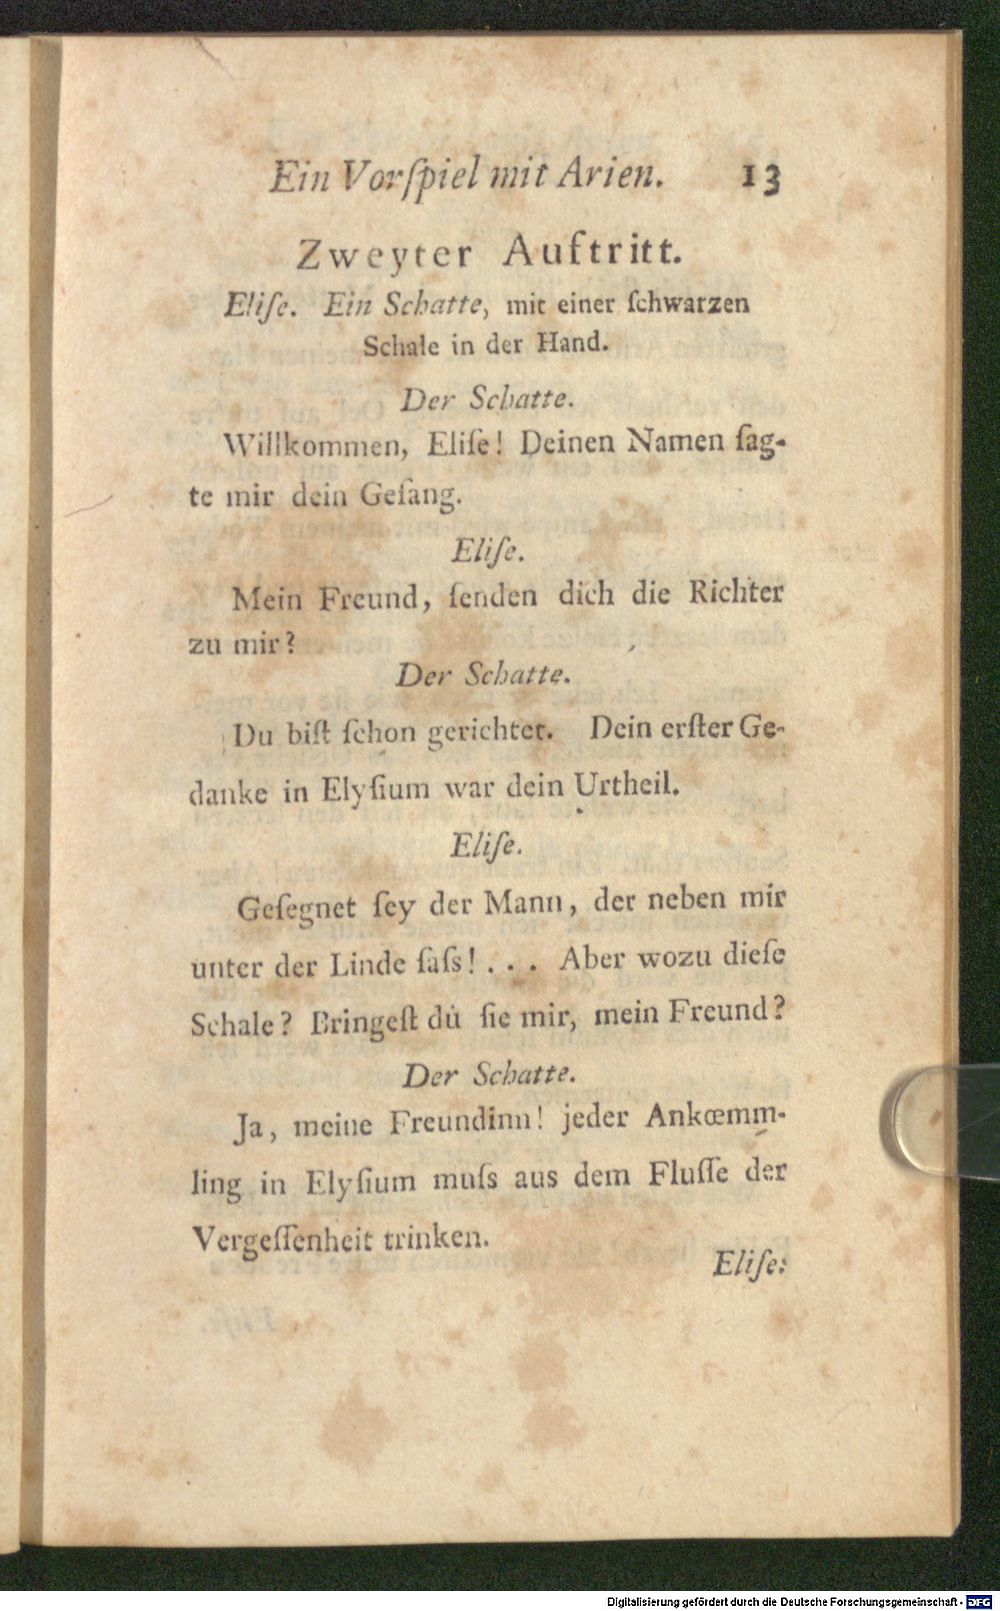 Ein Vorſpiel mit Arien. 13
Zweyter Auftritt.
Eliſe. Ein Schatte, mit einer ſchwarzen
Schale in der Hand.
Der Schatte.
Willkommen, Eliſe! Deinen Namen ſag-
te mir dein Geſang.
Eliſe.
Mein Freund, ſenden dich die Richter
zu mir?
Der Schatte.
Du biſt ſchon gerichtet. Dein erſter Ge-
danke in Elyſium war dein Urtheil.
Eliſe.
Geſegnet ſey der Mann, der neben mir
unter der Linde ſaſs! . . . Aber wozu dieſe
Schale? Bringeſt du ſie mir, mein Freund?
Der Schatte.
Ja, meine Freundinn! jeder Ankœmm-
ling in Elyſium muſs aus dem Fluſſe der
Vergeſſenheit trinken.
Eliſe:
Digitalisierung gefördert durch die Deutsche Forschungsgemeinschaft - DFG